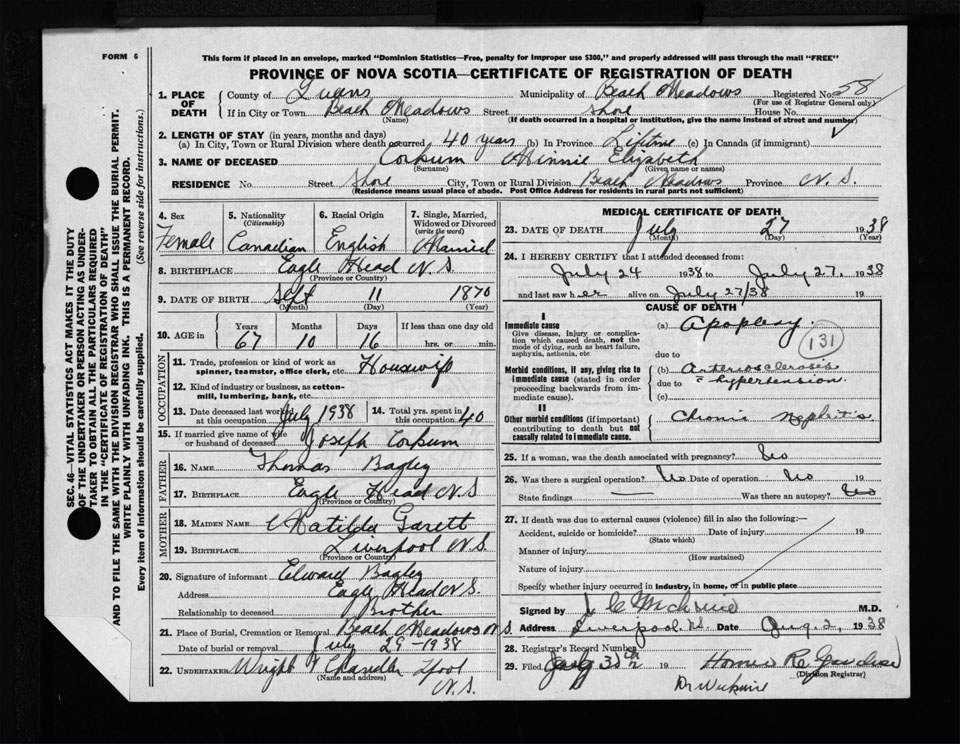 FORM 6
This form if placed in an envelope, marked "Dominion Statistics—Free, penalty for improper use $300," and properly addressed will pass through the mail "FREE"
PROVINCE OF NOVA SCOTIA—CERTIFICATE OF REGISTRATION OF DEATH
SEC. 46—VITAL STATISTICS ACT MAKES IT THE DUTY
OF THE UNDERTAKER OR PERSON ACTING AS UNDER-
TAKER TO OBTAIN ALL THE PARTICULARS REQUIRED
IN THE "CERTIFICATE OF REGISTRATION OF DEATH"
AND TO FILE THE SAME WITH THE DIVISION REGISTRAR WHO SHALL ISSUE THE BURIAL PERMIT.
WRITE PLAINLY WITH UNFADING INK. THIS IS A PERMANENT RECORD.
Every item of information should be carefully supplied. (See reverse side for instructions.)
1. PLACE OF DEATH County of Queens Municipality of Beach Meadows Registered No. 58
(For use of Registrar General only)
If in City or Town Beach Meadows Street Shore House No.
(Name) (If death occurred in a hospital or institution, give the name instead of street and number)
2. LENGTH OF STAY (in years, months and days)
(a) In City, Town or Rural Division where death occurred 40 years (b) In Province Lifetime (c) In Canada (if immigrant)
3. NAME OF DECEASED Corkum Minnie Elizabeth
(Surname) (Given name or names)
RESIDENCE No. Street Shore City, Town or Rural Division Beach Meadows Province N. S.
(Residence means usual place of abode. Post Office Address for residents in rural parts not sufficient)
4. Sex 5. Nationality (Citizenship) 6. Racial Origin 7. Single, Married, Widowed or Divorced (write the word)
Female Canadian English Married
8. BIRTHPLACE Eagle Head N. S.
(Province or Country)
9. DATE OF BIRTH Sept 11 1870
(Month) (Day) (Year)
10. AGE in Years Months Days If less than one day old
67 10 16 hrs. or min.
OCCUPATION
11. Trade, profession or kind of work as spinner, teamster, office clerk, etc. Housewife
12. Kind of industry or business, as cotton-mill, lumbering, bank, etc.
13. Date deceased last worked at this occupation July 1938 14. Total yrs. spent in this occupation 40
15. If married give name of wife or husband of deceased Joseph Corkum
FATHER
16. NAME Thomas Bagley
17. BIRTHPLACE Eagle Head N. S.
(Province or Country)
MOTHER
18. MAIDEN NAME Matilda Garett
19. BIRTHPLACE Liverpool N. S.
(Province or Country)
20. Signature of informant Edward Bagley
Address Eagle Head N. S.
Relationship to deceased Brother
21. Place of Burial, Cremation or Removal Beach Meadows N S.
Date of burial or removal July 29 - 1938
22. UNDERTAKER Wright & Chandler Lpool
(Name and address) N. S.
MEDICAL CERTIFICATE OF DEATH
23. DATE OF DEATH July 27 1938
(Month) (Day) (Year)
24. I HEREBY CERTIFY that I attended deceased from:
July 24 1938 to July 27. 1938
and last saw her alive on July 27/38 19
CAUSE OF DEATH
I
Immediate cause (a) Apoplexy.
Give disease, injury or complication which caused death, not the mode of dying, such as heart failure, asphyxia, asthenia, etc
due to 131
Morbid conditions, if any, giving rise to immediate cause (stated in order proceeding backwards from immediate cause).
(b) Arteriosclerosis
due to c hypertension.
(c)
II
Other morbid conditions (if important) contributing to death but not causally related to immediate cause.
Chronic nephritis
25. If a woman, was the death associated with pregnancy? No
26. Was there a surgical operation? No Date of operation No 19
State findings — Was there an autopsy? No
27. If death was due to external causes (violence) fill in also the following:—
Accident, suicide or homicide? Date of injury 19
(State which)
Manner of injury
(How sustained)
Nature of injury
Specify whether injury occurred in Industry, in home, or in public place
Signed by M.D.
Address Liverpool N.S. Date Aug. 2, 1938
28. Registrar's Record Number
29. Filed 30th Homer
(Division Registrar)
Dr Wickwire